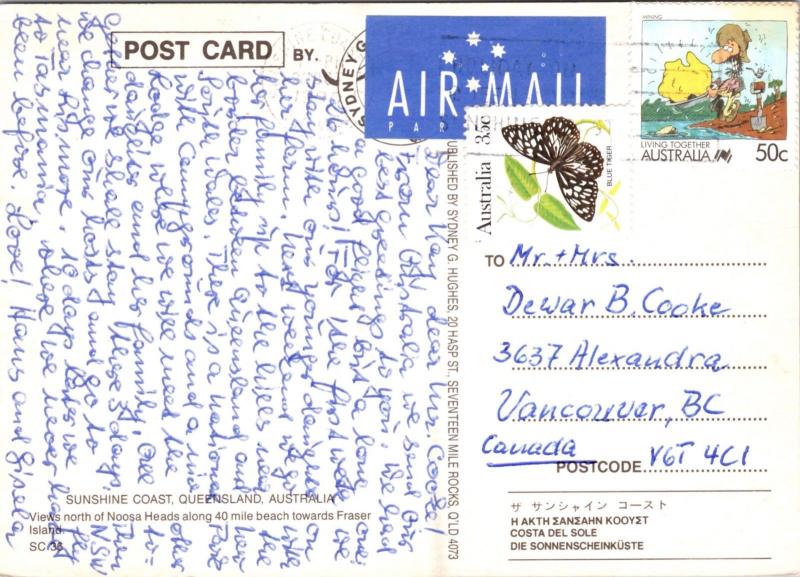 POST CARD BY.
SYDNEY G
AIR MAIL
PAR
MINING
LIVING TOGETHER
AUSTRALIA 50c
Australia 35c
BLUE TIGER
Dear Kay, dear Mr. Cooke!
From Australia we send our
best greetings to you. We had
a good flight but a long one:
20 hours! For the first week we
stay with our younger daughter on
her farm. Next weekend we go with
her family up to the hills near the
border between Queensland and New
South Wales. There is a national Park
with campgrounds and a nice
Lodge where we will meet the other
daughter and her family. All to-
gether we shall stay there 3 days. Then
we change our hosts and go to NSW
near Lismore. 10 days later we fly
to Tasmania, where we never had
been before. Love! Hans and Gisela
PUBLISHED BY SYDNEY G. HUGHES, 20 HASP ST., SEVENTEEN MILE ROCKS, Q'LD 4073
TO Mr. + Mrs.
Dewar B. Cooke
3637 Alexandra
Vancouver, BC
Canada
POSTCODE V6T 4C1
SUNSHINE COAST, QUEENSLAND, AUSTRALIA
Views north of Noosa Heads along 40 mile beach towards Fraser
Island.
SC 36
ザ サンシャイン コースト
Η ΑΚΤΗ ΣΑΝΣΑΗΝ ΚΟΟΥΣΤ
COSTA DEL SOLE
DIE SONNENSCHEINKÜSTE